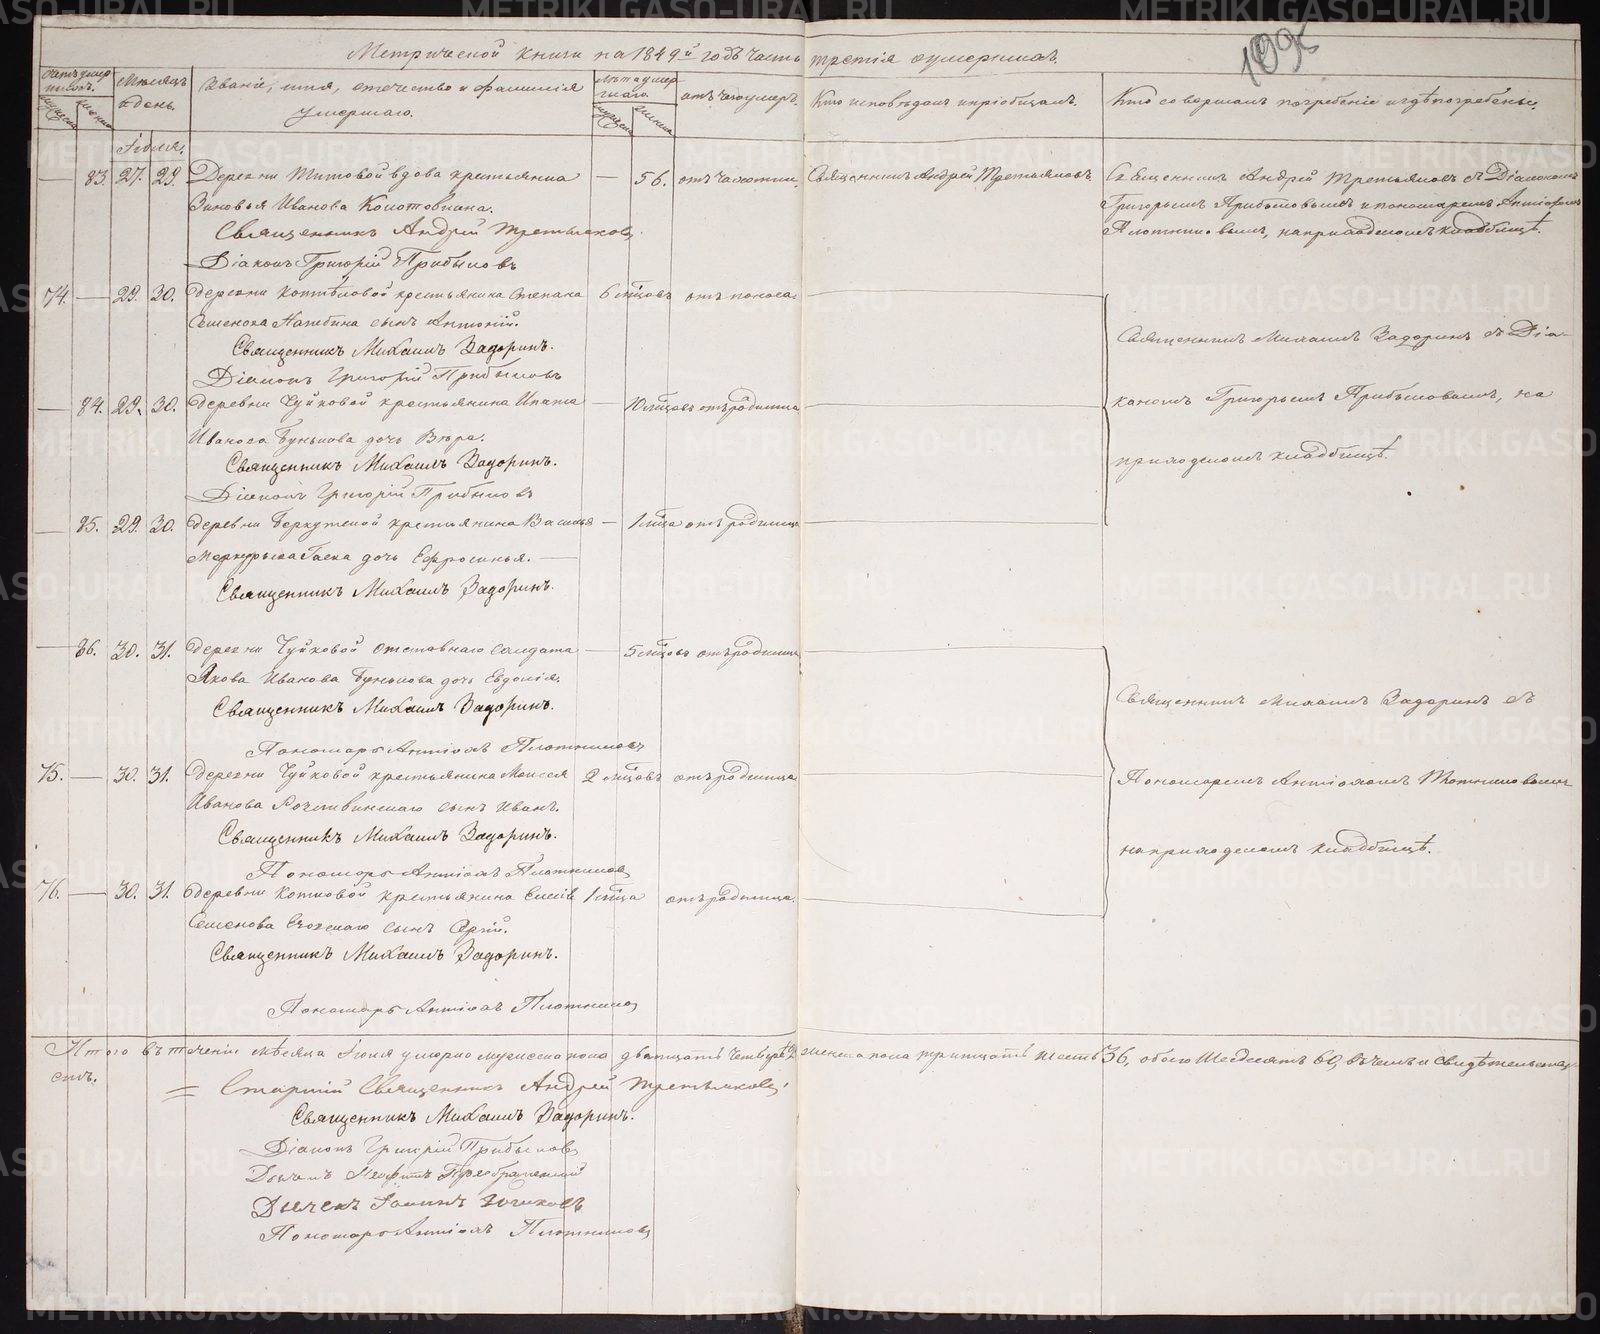 Метрической книги на 1849й годъ часть третія оумершихъ.
Мѣсяцъ и день.
Званіе, имя, отечество и фамилія умершаго.
Лѣта умершаго.
отъ чего умеръ.
Кто исповѣдалъ и пріобщалъ.
Кто совершалъ погребеніе и гдѣ погребены.
Іюля.
— 83. 27. 29. Деревни Титовой вдова крестьянка — 56. отъ чахотки. Священникъ Андрей Третьяковъ. Священникъ Андрей Третьяковъ съ Діакономъ
Зиновья Иванова
Григорьемъ Прибыловымъ и пономаремъ Антіохомъ
Священникъ Андрей Третьяковъ
Плотниковымъ, на приходскомъ кладбищѣ.
Діаконъ Григорій Прибыловъ
74. — 29. 30. Деревни крестьянина Степана 6 мѣцовъ отъ поноса
Семенова сынъ Антоній.
Священникъ Михаилъ Задоринъ.
Священникъ Михаилъ Задоринъ съ Діа-
Діаконъ Григорій Прибыловъ
— 84. 29. 30. Деревни Чуйковой крестьянина Ипата — 10 мѣцовъ отъ родимца
кономъ Григорьемъ Прибыловымъ, на
Иванова Бунькова дочь Вѣра.
приходскомъ кладбищѣ.
Священникъ Михаилъ Задоринъ.
Діаконъ Григорій Прибыловъ
— 85. 29. 30. Деревни крестьянина Василья — 1 мѣца отъ родимца
дочь Ефросинья.
Священникъ Михаилъ Задоринъ.
— 86. 30. 31. Деревни Чуйковой отставнаго солдата — 5 мѣцовъ отъ родимца
Якова Иванова Бунькова дочь Евдокія.
Священникъ Михаилъ Задоринъ.
Священникъ Михаилъ Задоринъ съ
Пономарь Антіохъ Плотниковъ
75. — 30. 31. Деревни Чуйковой крестьянина Моисея 2 мѣцовъ отъ родимца
Пономаремъ Антіохомъ Плотниковымъ
Иванова сынъ Иванъ.
Священникъ Михаилъ Задоринъ.
на приходскомъ кладбищѣ.
Пономарь Антіохъ Плотниковъ
76. — 30. 31. Деревни крестьянина 1 мѣца отъ родимца.
Семенова сынъ
Священникъ Михаилъ Задоринъ.
Пономарь Антіохъ Плотниковъ
Итого въ теченіи мѣсяца Іюля умерло мужеска пола двадцать четыре женска пола тритцать шесть 36, обоего шесдесятъ 60, въ чемъ и свидѣтельству-
емъ.
= Старшій Священникъ Андрей Третьяковъ.
Священникъ Михаилъ Задоринъ.
Діаконъ Григорій Прибыловъ
Дьячекъ
Дьячекъ
Пономарь Антіохъ Плотниковъ
METRIKI.GASO-URAL.RU